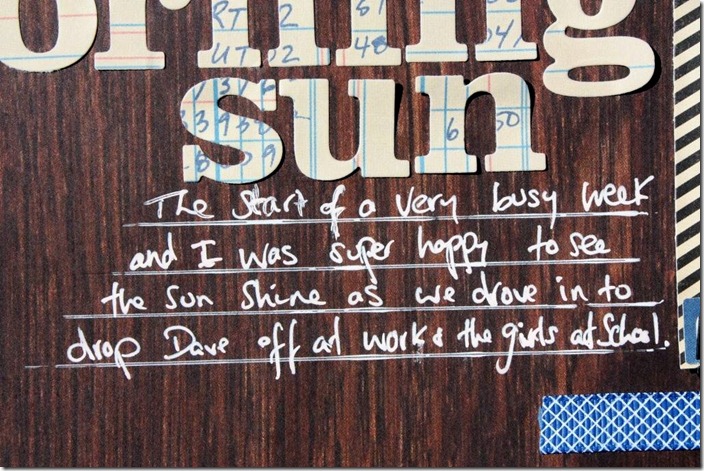 orning
sun
The start of a very busy week
and I was super happy to see
the sun shine as we drove in to
drop Dave off at work & the girls at School.